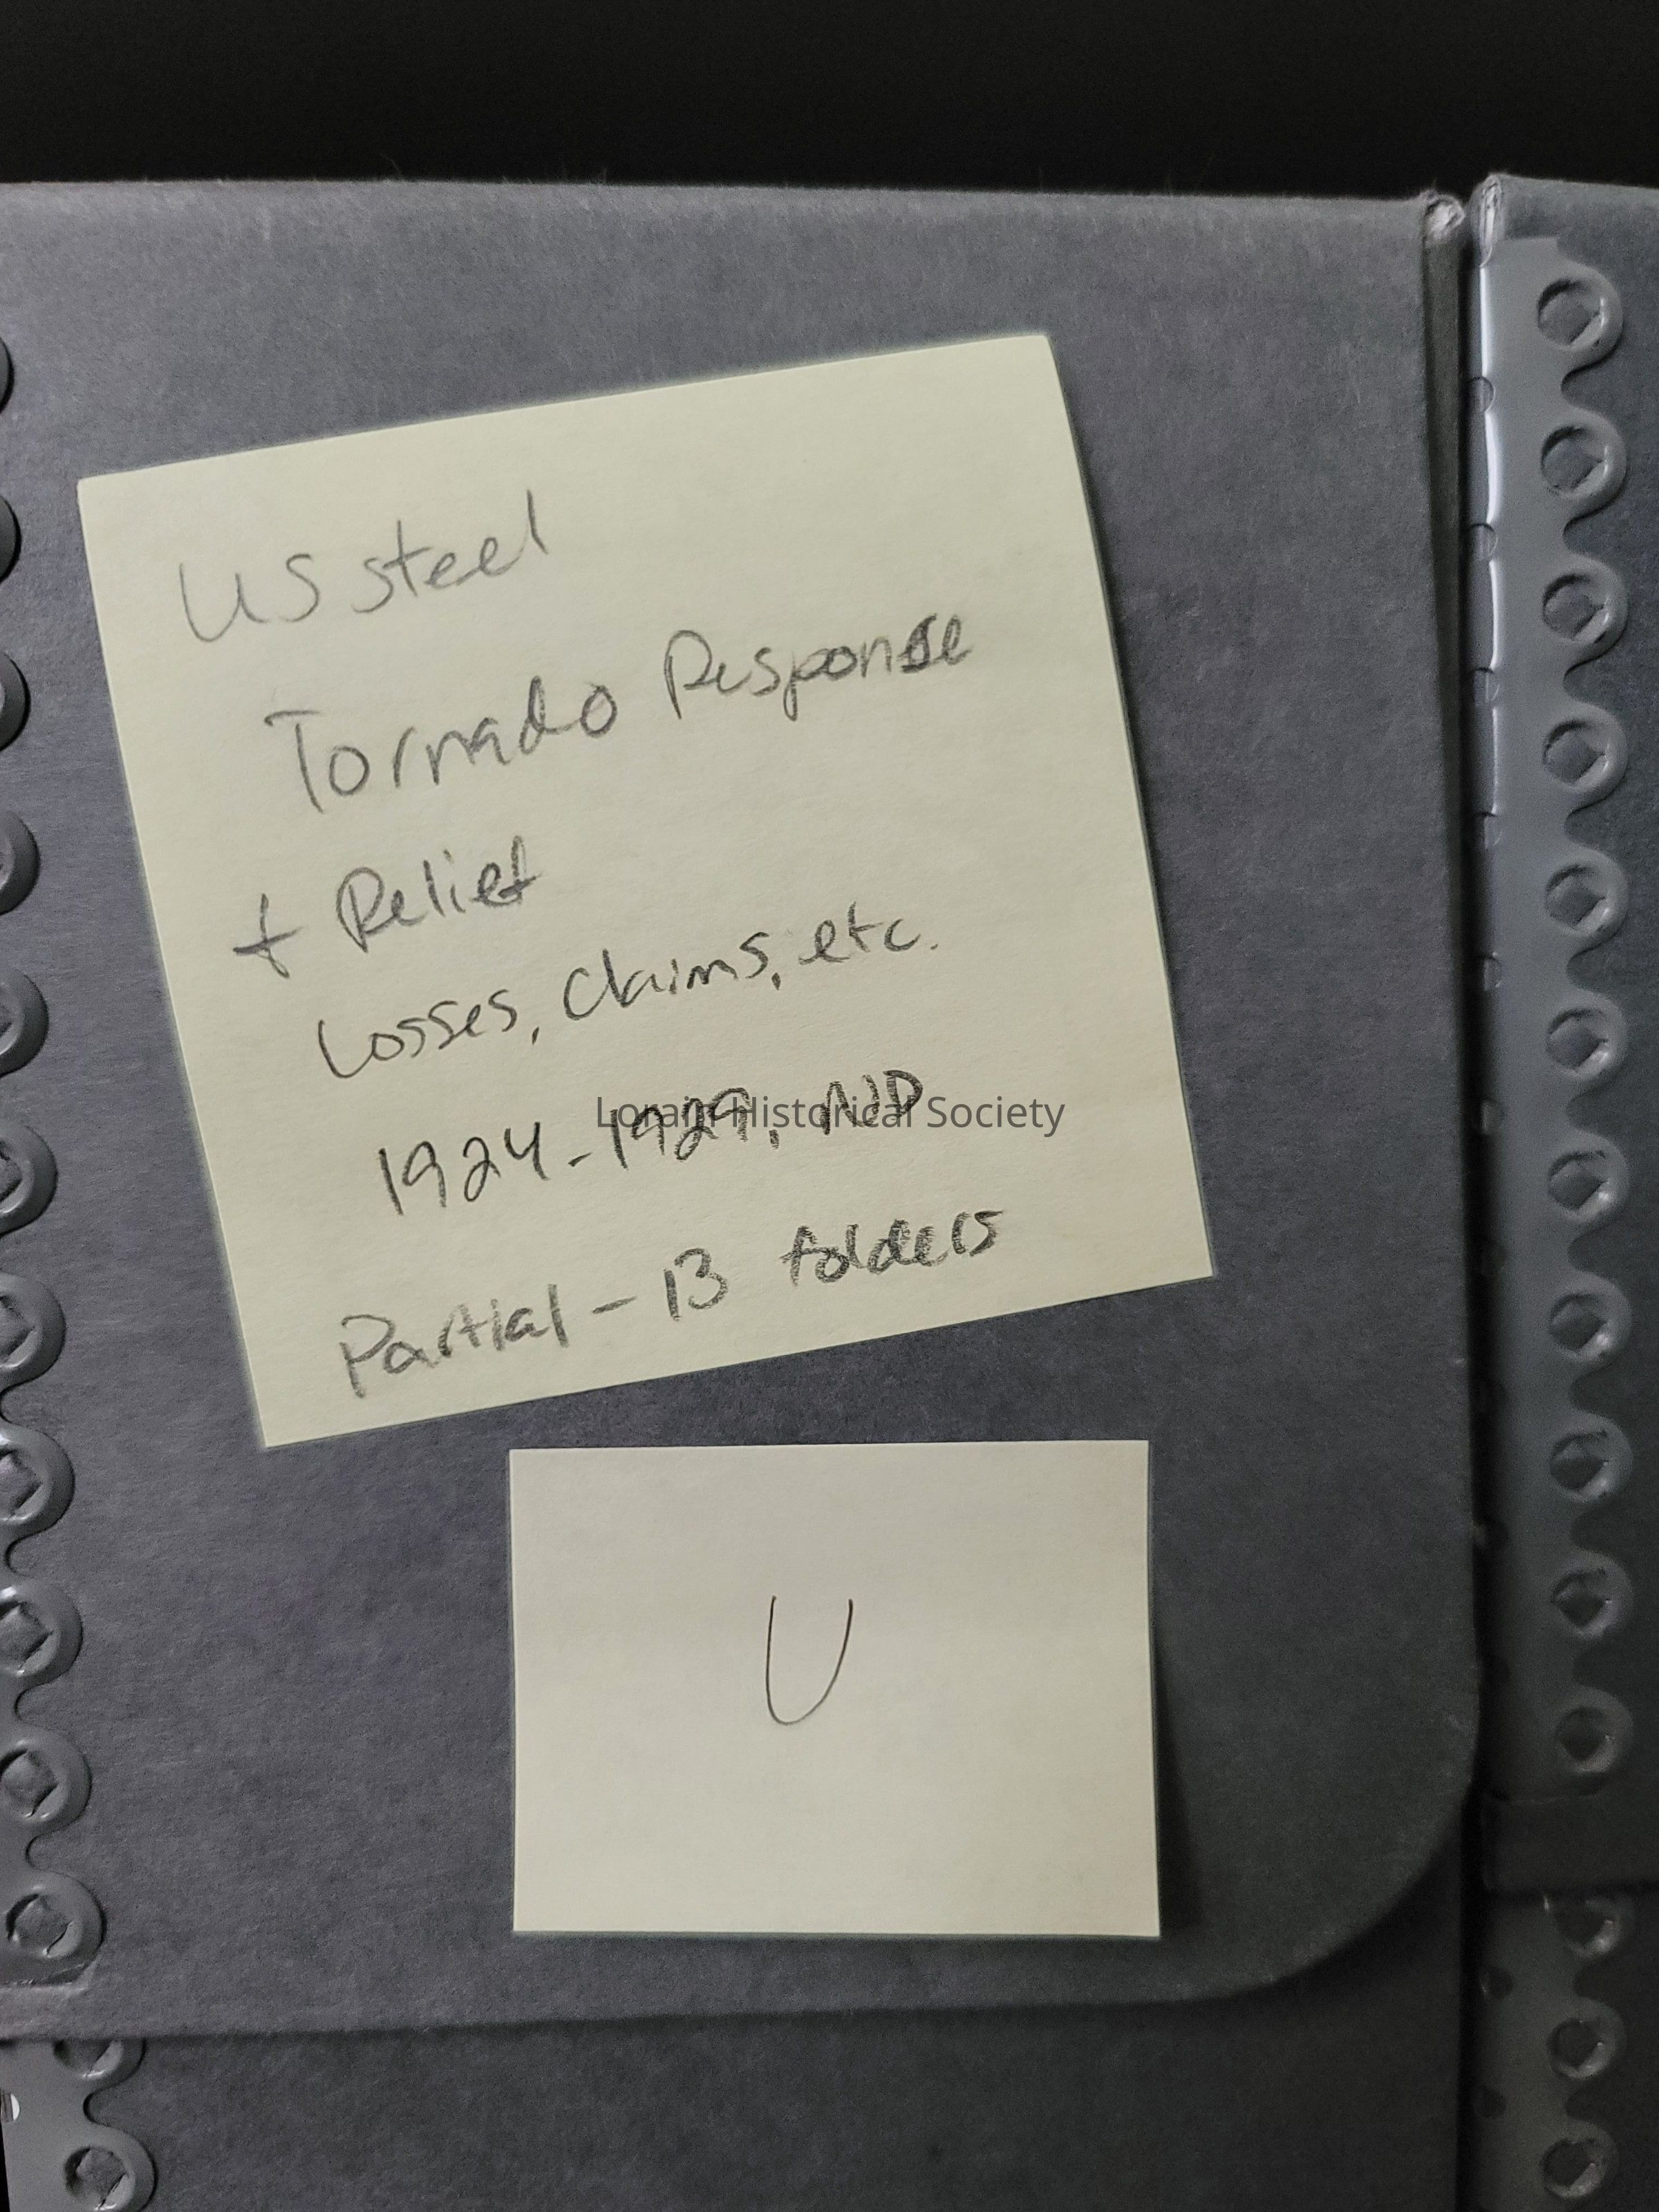 US steel
Tornado Response
+ Relief
Losses, Claims, etc.
1924-1929, ND
Lorain Historical Society
Partial - 13 folders
U